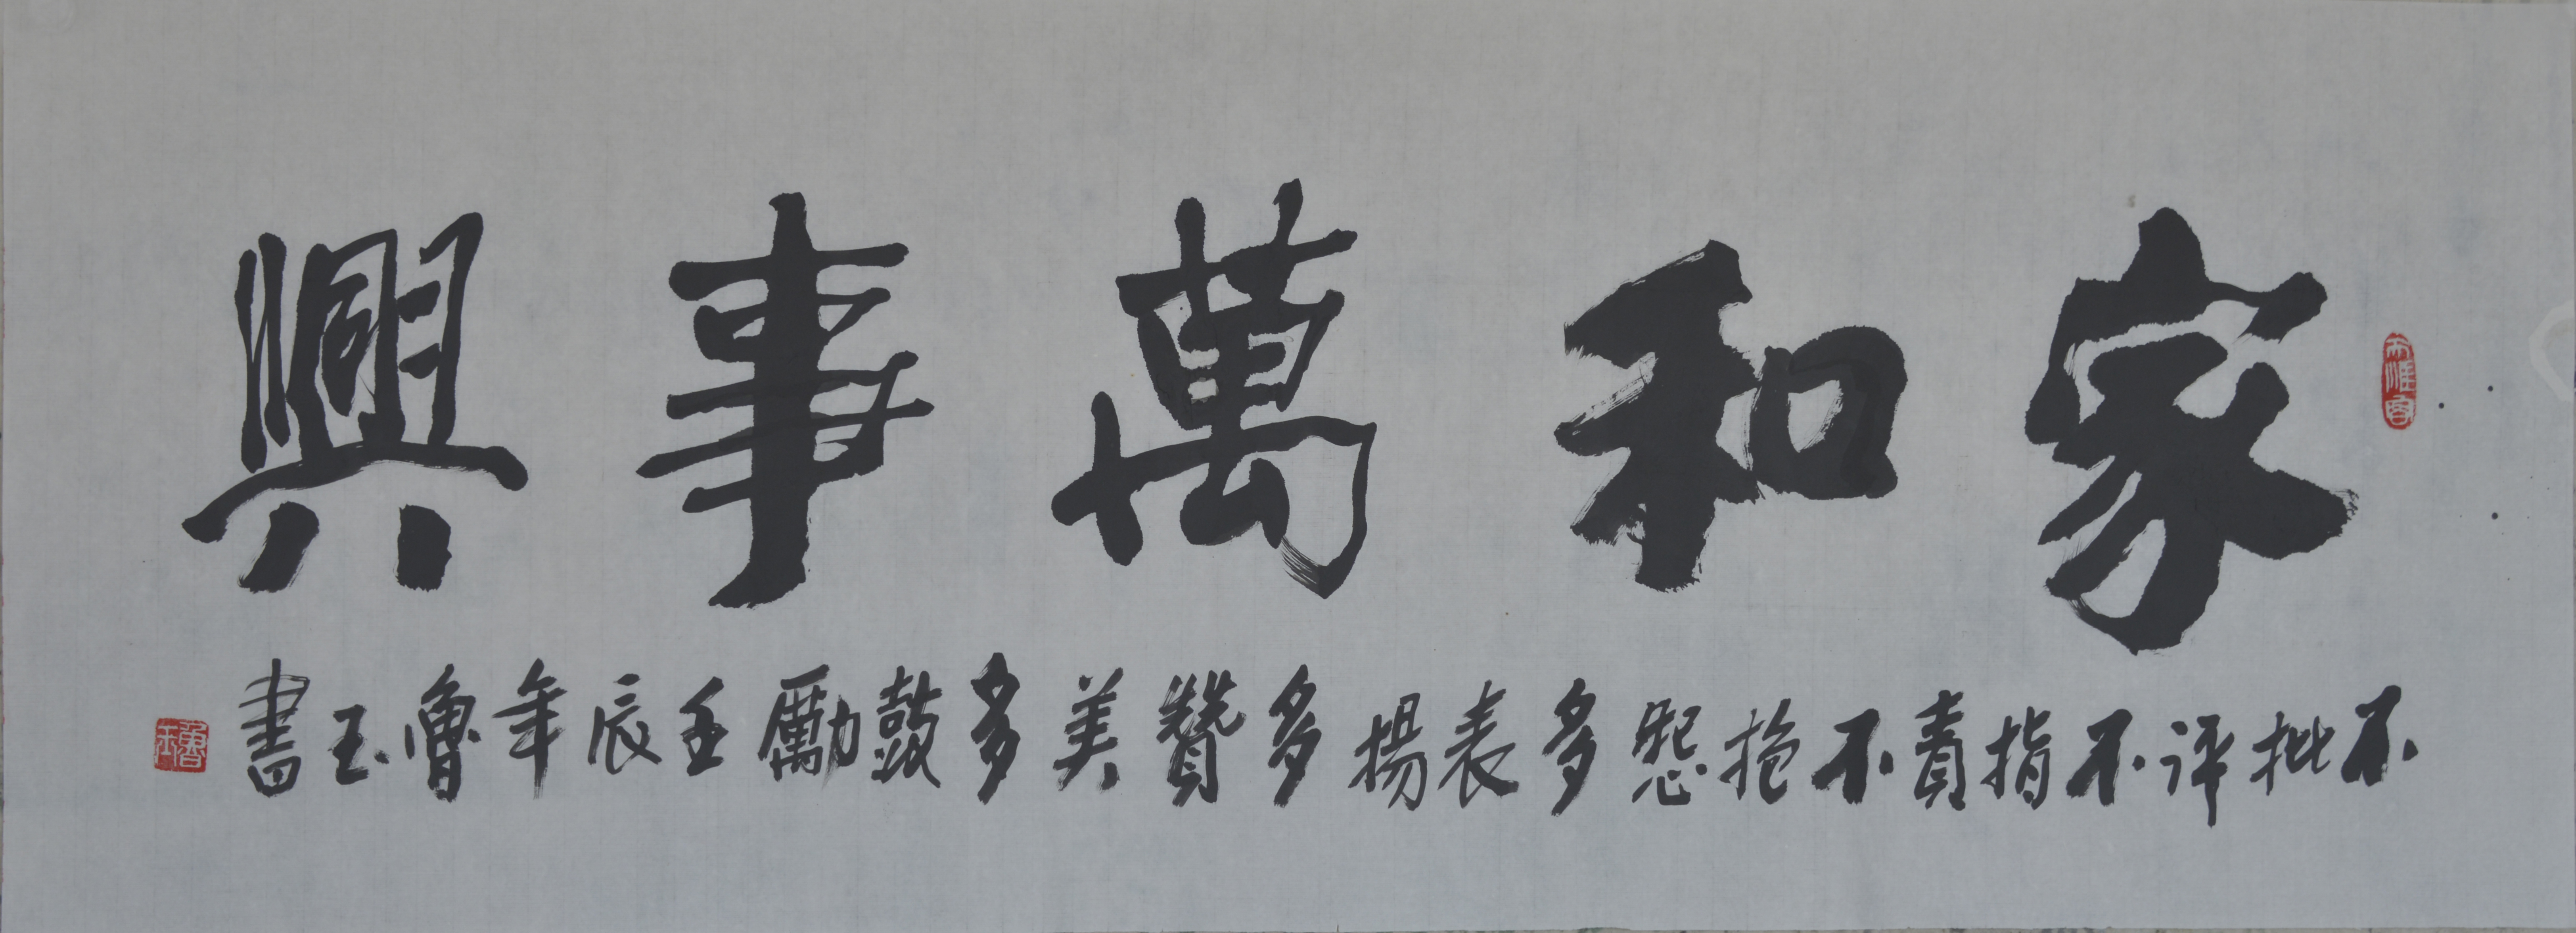 家和萬事興
不批评不指責不抱怨多表揚多贊美多鼓勵壬辰年魯玉書
魯玉